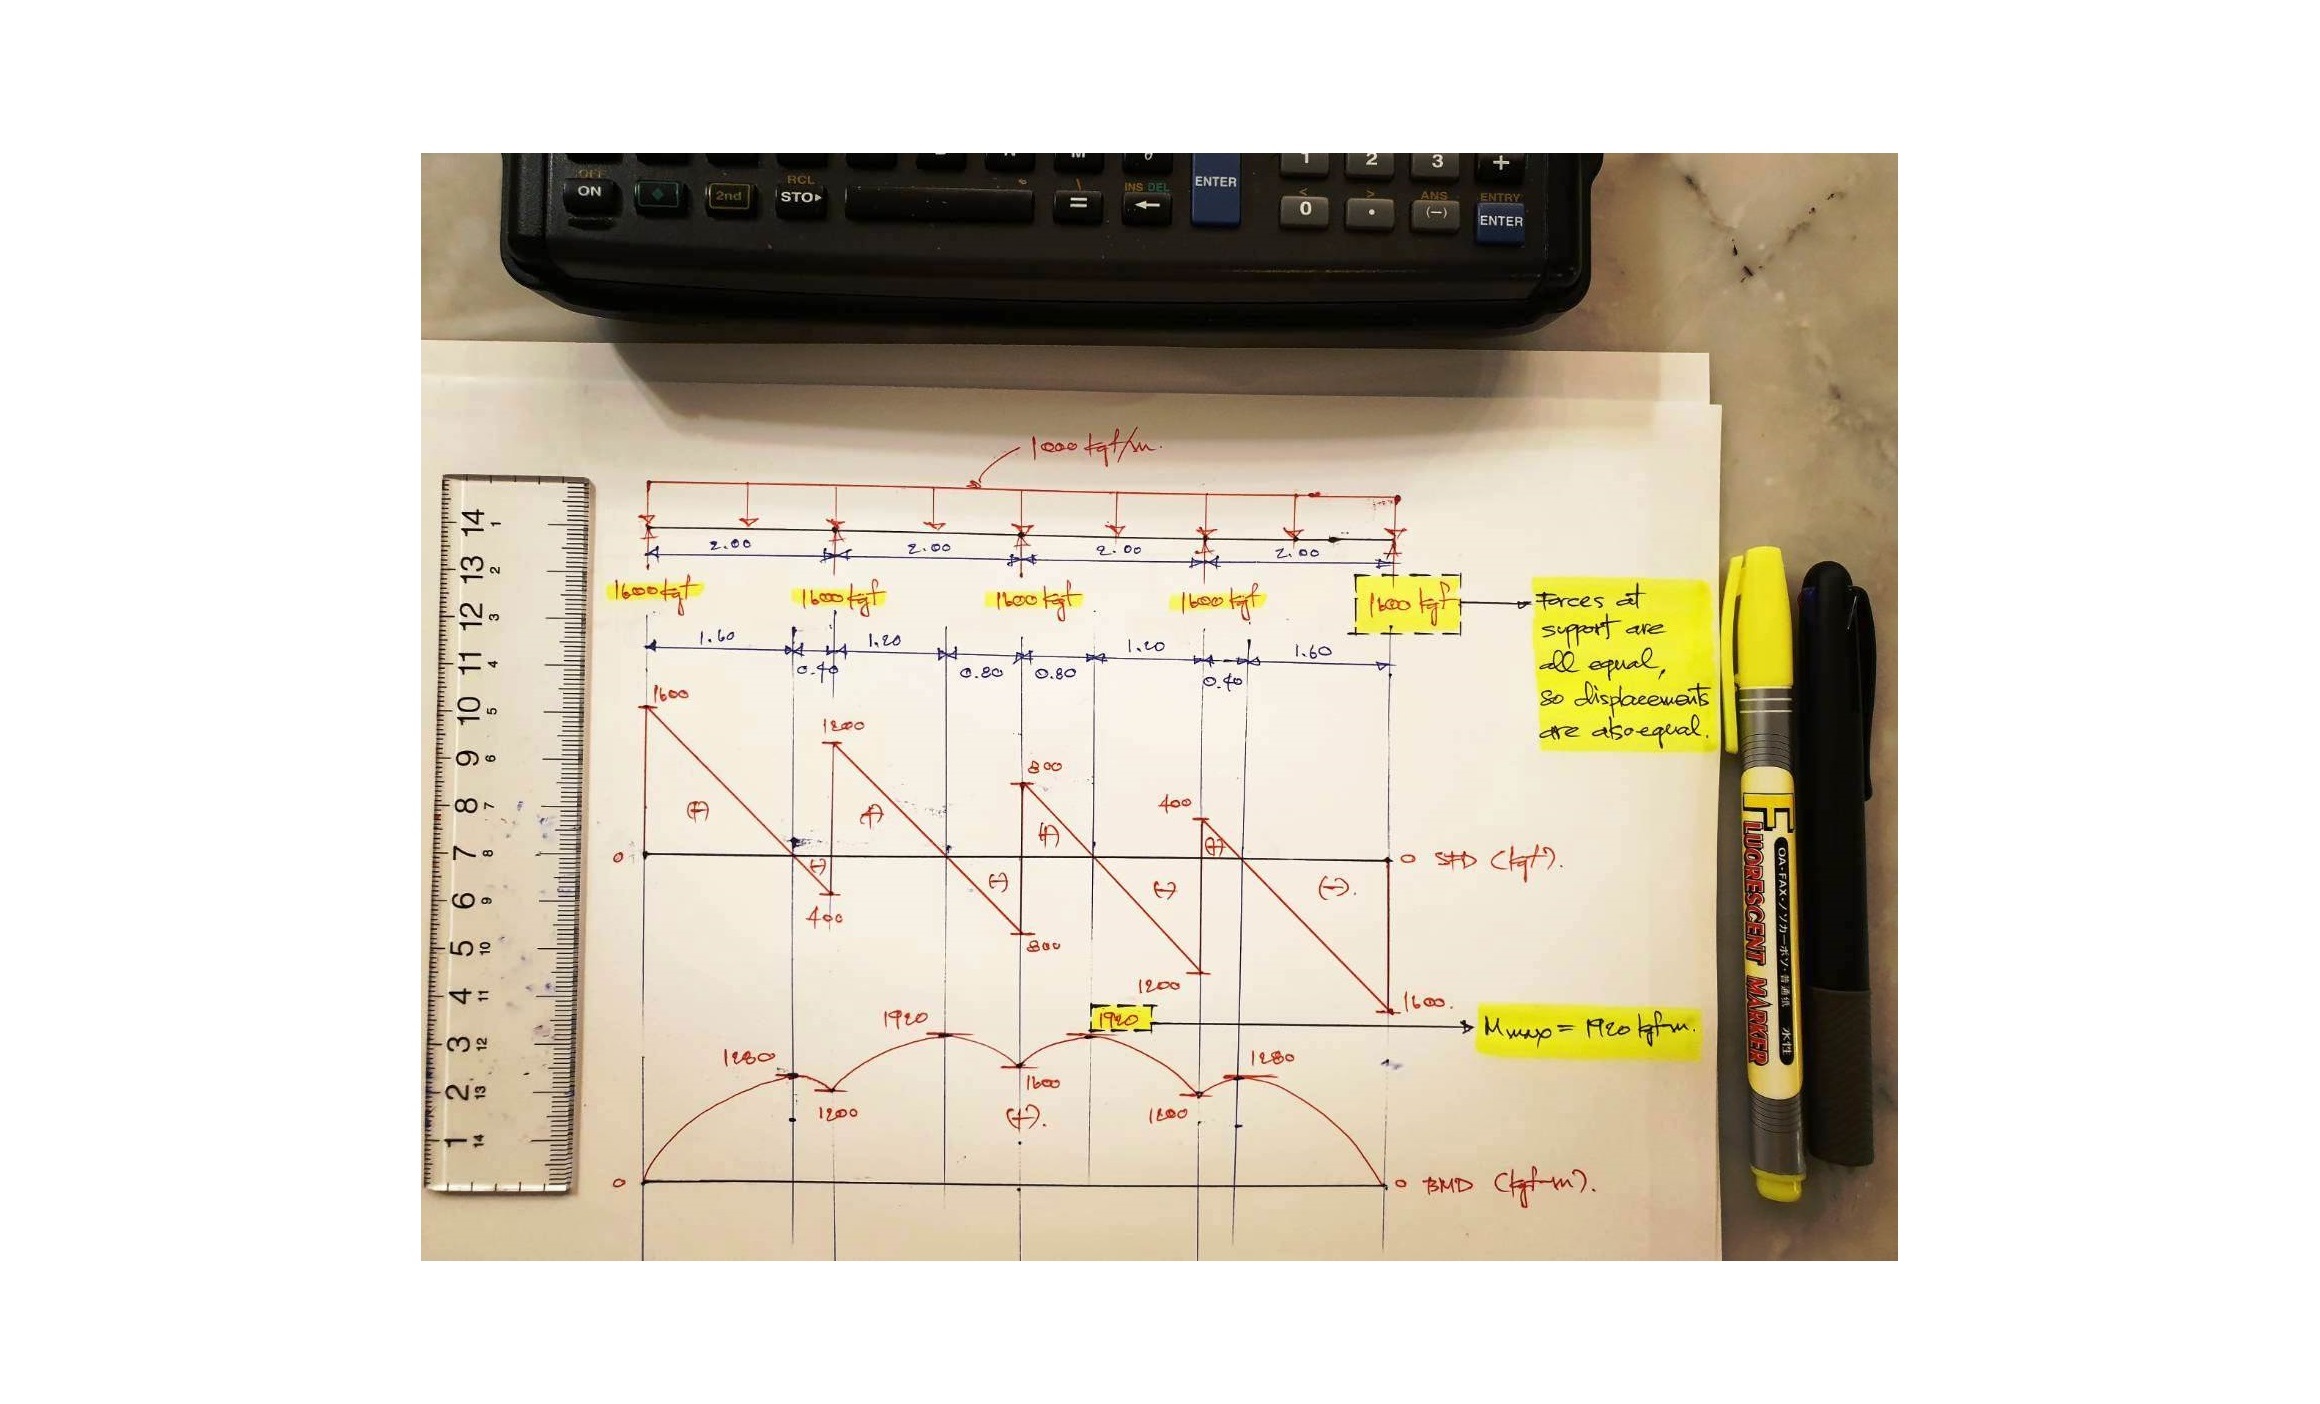 M
OFF
RCL
INS DEL
ENTER
1
2
3
+
ON
2nd
STO▸
=
←
0
•
ANS
(−)
ENTRY
ENTER
1000 kgf/m.
2.00
2.00
2.00
2.00
1600 kgf
1600 kgf
1600 kgf
1600 kgf
1600 kgf
Forces at
support are
all equal,
so displacements
are also equal.
1.60
0.40
1.20
0.80
0.80
1.20
0.40
1.60
1600
1200
800
400
(+)
(+)
(+)
(+)
0
0 SFD (kgf).
(-)
(-)
(-)
(-).
400
800
1200
1600.
1920
1920
Mmax = 1920 kgf-m.
1280
1280
1200
1600
1200
(+).
0
0 BMD (kgf-m).
14
13
12
11
10
9
8
7
6
5
4
3
2
1
1
2
3
4
5
6
7
8
9
10
11
12
13
14
FLUORESCENT MARKER
水性